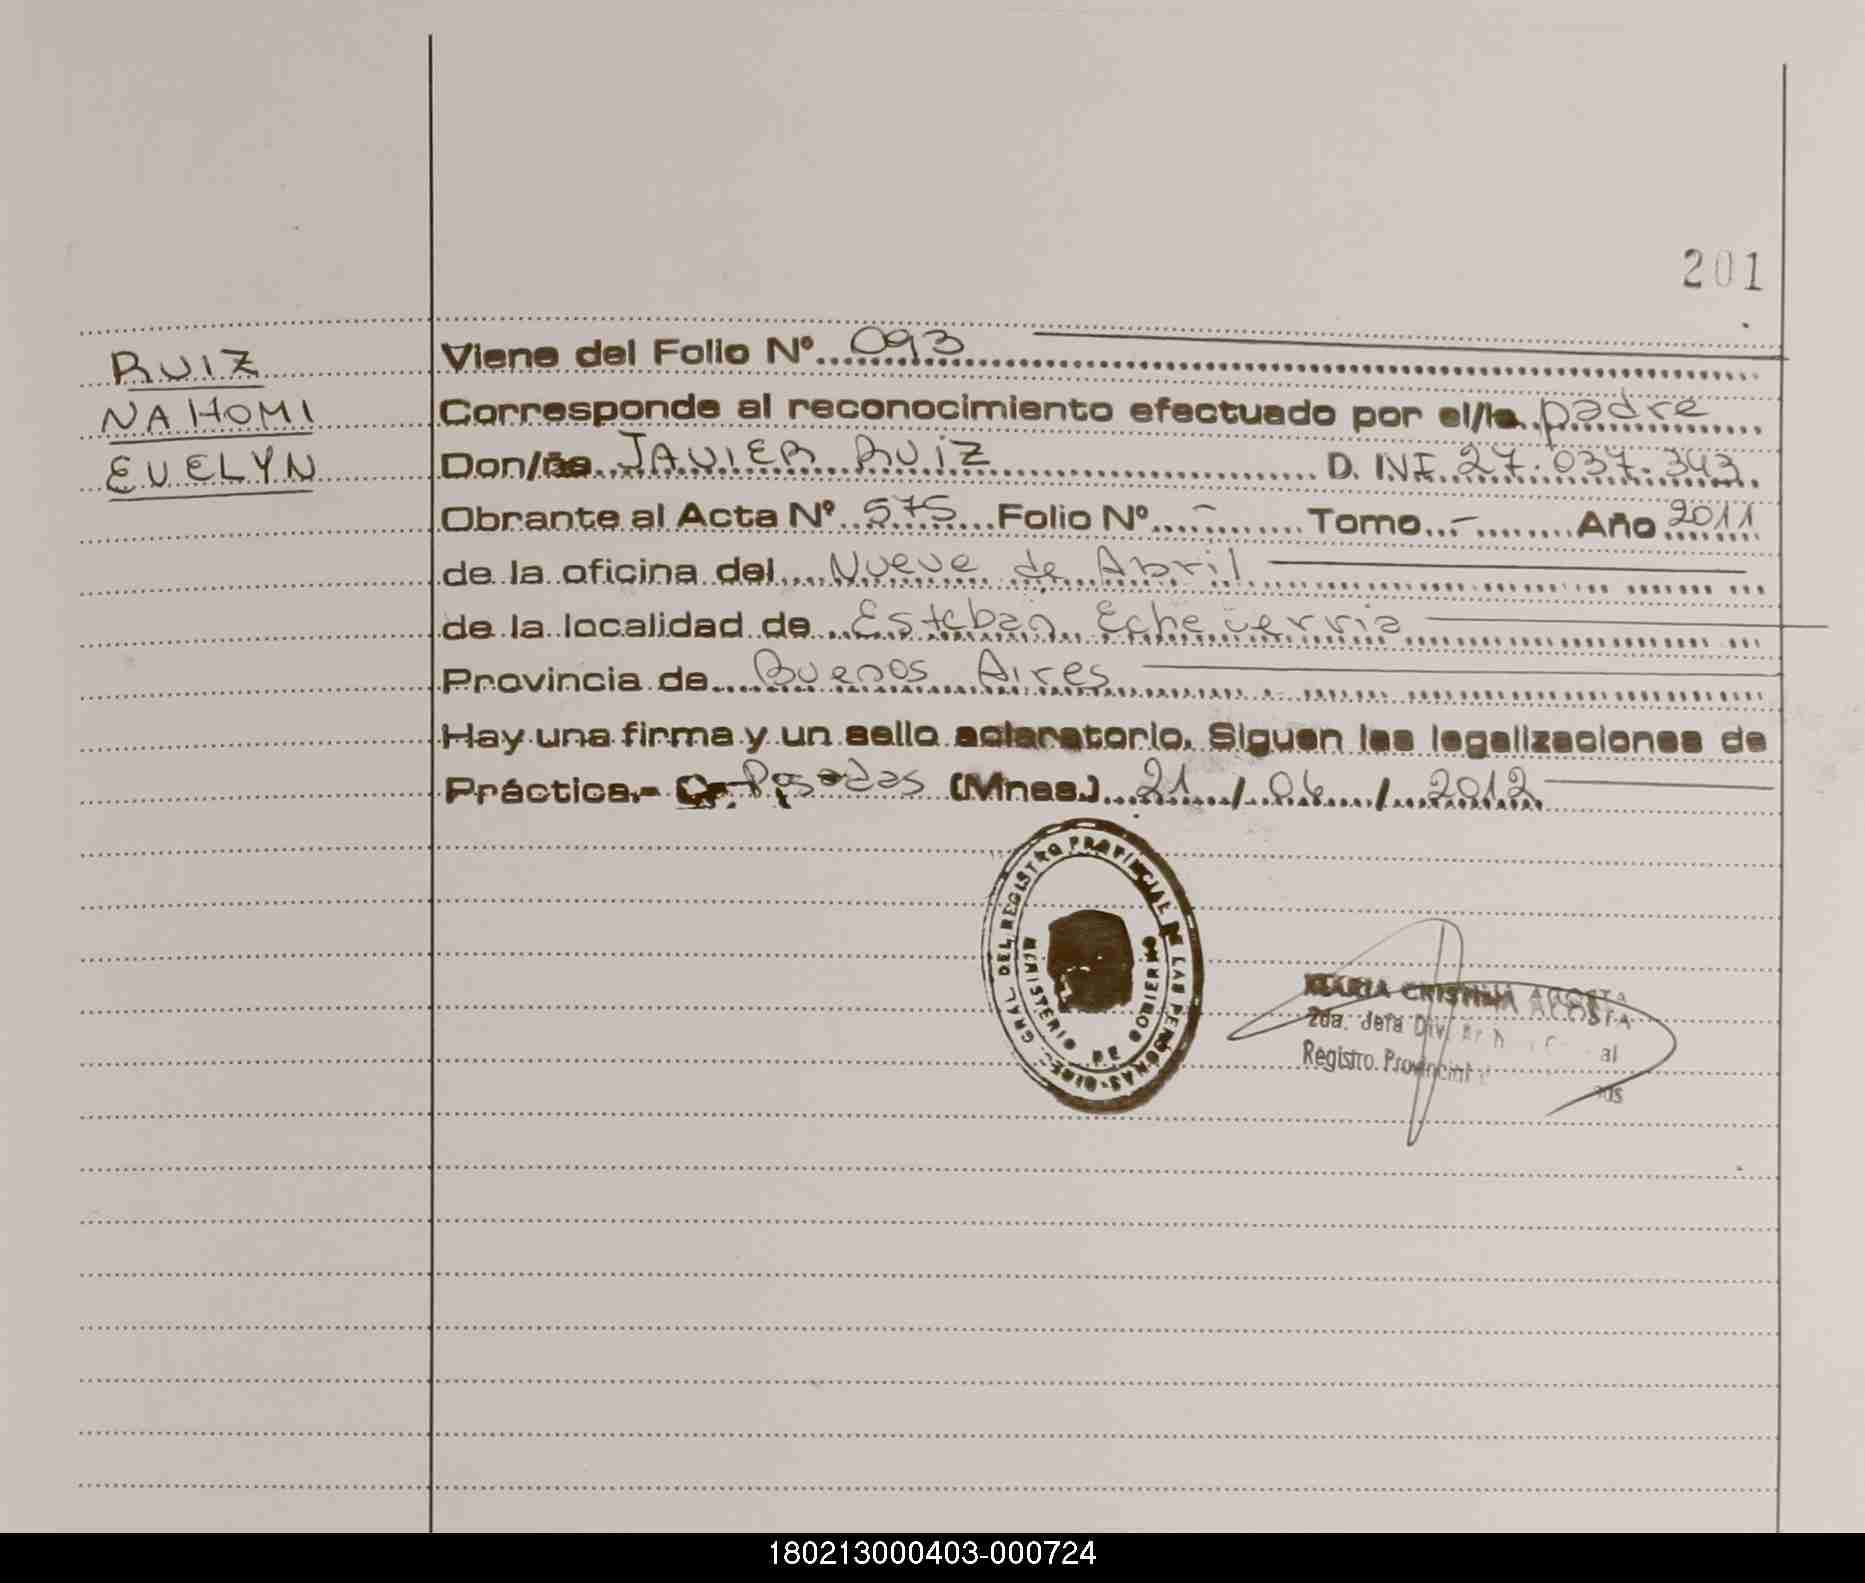 201
RUIZ
NAHOMI
EVELYN
Viene del Folio Nº 093
Corresponde al reconocimiento efectuado por el/la padre
Don/ña JAVIER RUIZ D. NI. 27.037.343
Obrante al Acta Nº 575 Folio Nº - Tomo - Año 2011
de la oficina del Nueve de Abril
de la localidad de Esteban Echeverria
Provincia de Buenos Aires
Hay una firma y un sello aclaratorio. Siguen las legalizaciones de
Práctica.- Posadas (Mnes.) 21 / 06 / 2012
GRAL. DEL REGISTRO PROVINCIAL DE LAS PERSONAS - DIRE
MINISTERIO DE GOBIERNO
MARIA CRISTINA ACOSTA
2da. Jefa Div.
Registro Provincial
180213000403-000724